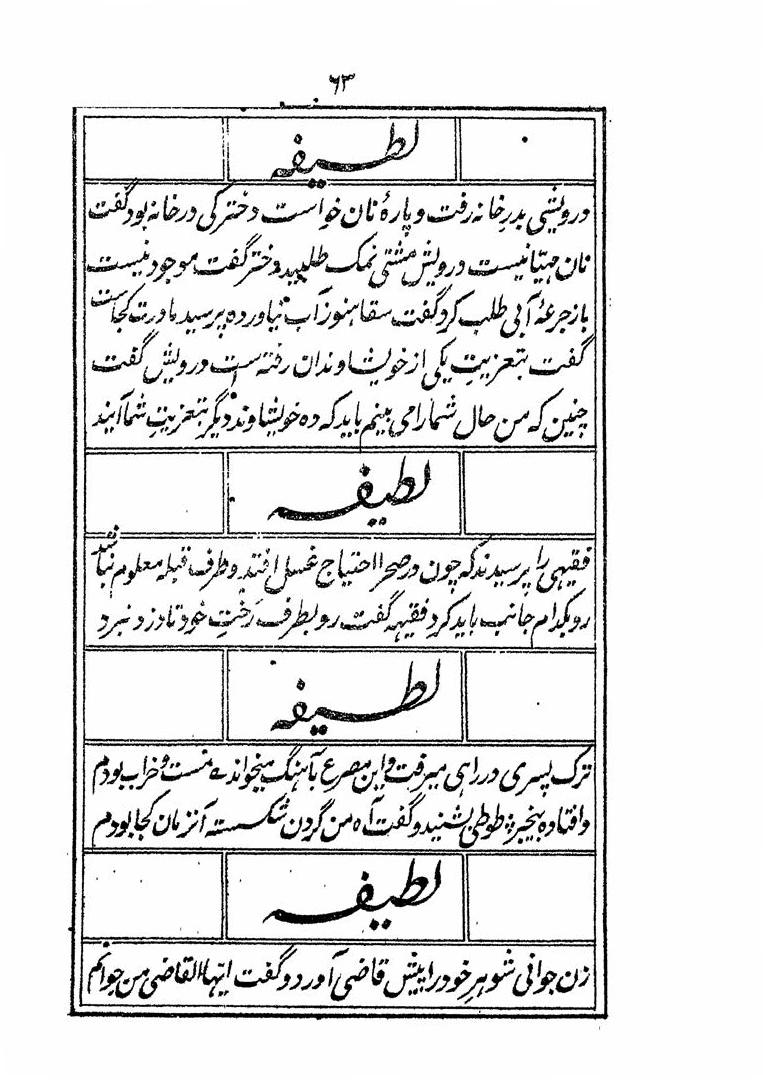 ٦٣
لطیفه
درویشی بدر خانه رفت و پارهٔ نان خواست دخترکی در خانه بود گفت
نان مهیّا نیست درویش مشتی نمک طلبید دختر گفت موجود نیست
باز جرعهٔ آبی طلب کرد گفت سقا هنوز آب نیاورده پرسید مادرت کجاست
گفت بتعزیتِ یکی از خویشاوندان رفته است درویش گفت
چنین که من حال شما را می بینم باید که ده خویشاوند دیگر بتعزیتِ شما آیند
لطیفه
فقیهی را پرسیدند که چون در صحرا احتیاج غسل افتد و طرف قبله معلوم نباشد
رو بکدام جانب باید کرد فقیهه گفت رو بطرف رَختِ خود تا دزد نبرد
لطیفه
ترک پسری در راهی میرفت و این مصرع بآهنگ میخواند ے مست و خراب بودم
و افتاده بیخبر ؛ طوطی بشنید و گفت آه من گردن شکسته آنزمان کجا بودم
لطیفه
زن جوانی شوهرِ خود را پیش قاضی آورد و گفت ایّها القاضی من جوانم